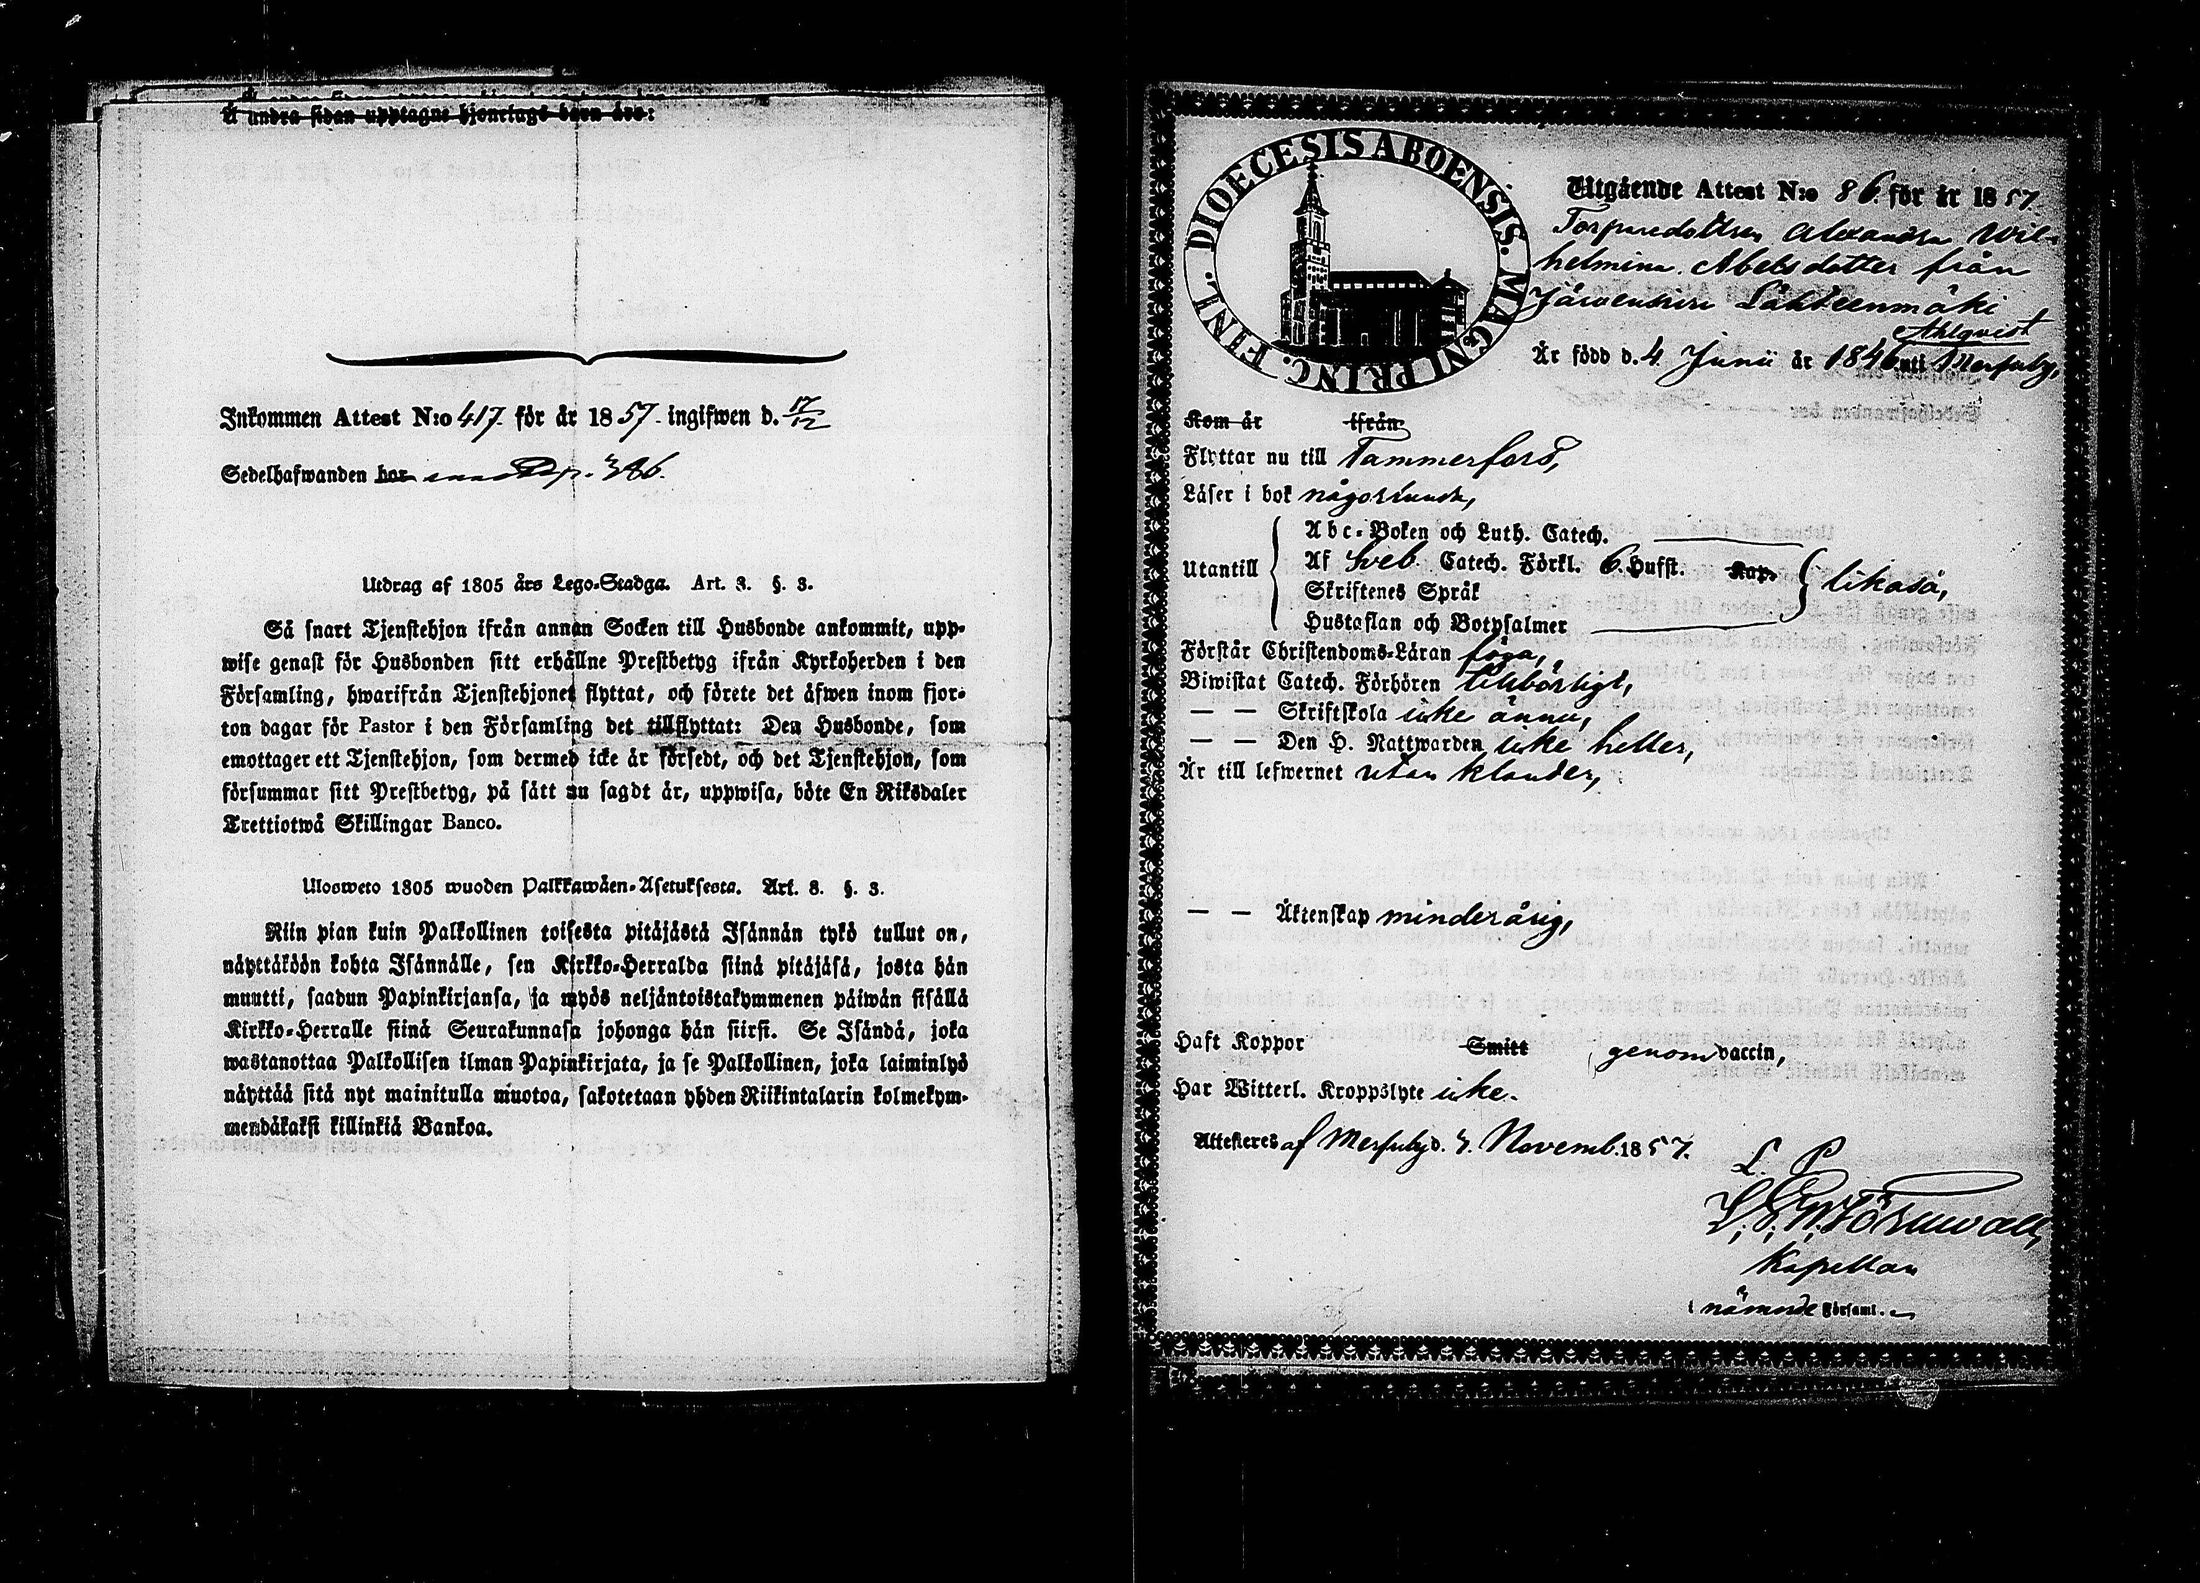 Å andra sidan upptagne hjonelags barn äro:
Inkommen Attest N:o 417. för år 1857. ingifwen d. 17/12
Sedelhafwanden har p. 386.
Utdrag af 1805 års Lego-Stadga. Art. 3. §. 3.
Så snart Tjenstehjon ifrån annan Socken till Husbonde ankommit, upp-
wise genast för Husbonden sitt erhållne Prestbetyg ifrån Kyrkoherden i den
Församling, hwarifrån Tjenstehjonet flyttat, och förete det äfwen inom fjor-
ton dagar för Pastor i den Församling det tillflyttat: Den Husbonde, som
emottager ett Tjenstehjon, som dermed icke är försedt, och det Tjenstehjon, som
försummar sitt Prestbetyg, på sätt nu sagdt är, uppwisa, böte En Riksdaler
Trettiotwå Skillingar Banco.
Ulosweto 1805 wuoden Palkkawäen-Asetuksesta. Art. 3. §. 3.
Niin pian kuin Palkollinen toisesta pitäjästä Isännän tykö tullut on,
näyttäköön kohta Isännälle, sen Kirkko-Herralda siinä pitäjäsä, josta hän
muutti, saadun Papinkirjansa, ja myös neljäntoistakymmenen päiwän sisällä
Kirkko-Herralle siinä Seurakunnasa johonga hän siirsi. Se Isändä, joka
wastanottaa Palkollisen ilman Papinkirjata, ja se Palkollinen, joka laiminlyö
näyttää sitä nyt mainitulla muotoa, sakotetaan yhden Riikintalarin kolmekym-
mendäkaksi killinkiä Bankoa.
DIOECESIS ABOENSIS. MAGNI PRINC. FINL.
Utgående Attest N:o 86. för år 1857.
Torparedottren Alexandra Wil-
helmina Abelsdotter från
Järvenkere Lähteenmäki
Ahlqvist
Är född d. 4 Junii år 1846 uti Merfuby,
Kom år ifrån
Flyttar nu till Tammerfors,
Läser i bok någorlunda,
Utantill
Abc-Boken och Luth. Catech.
Af Sveb. Catech. Förkl. 6. Hufst. Kap.
Skriftenes Språk
Hustaflan och Botpsalmer
likaså,
Förstår Christendoms-Läran föga,
Biwistat Catech. Förhören tillbörligt,
— — Skriftskola icke ännu,
— — Den H. Nattwarden icke heller,
Är till lefwernet utan klander,
— — Äktenskap minderårig,
Haft Koppor Smitt genom vaccin,
Har Witterl. Kroppslyte icke.
Attesteres af Merfuby d. 3. Novemb. 1857.
L. P.
Kapellan
i nämnde Församl.